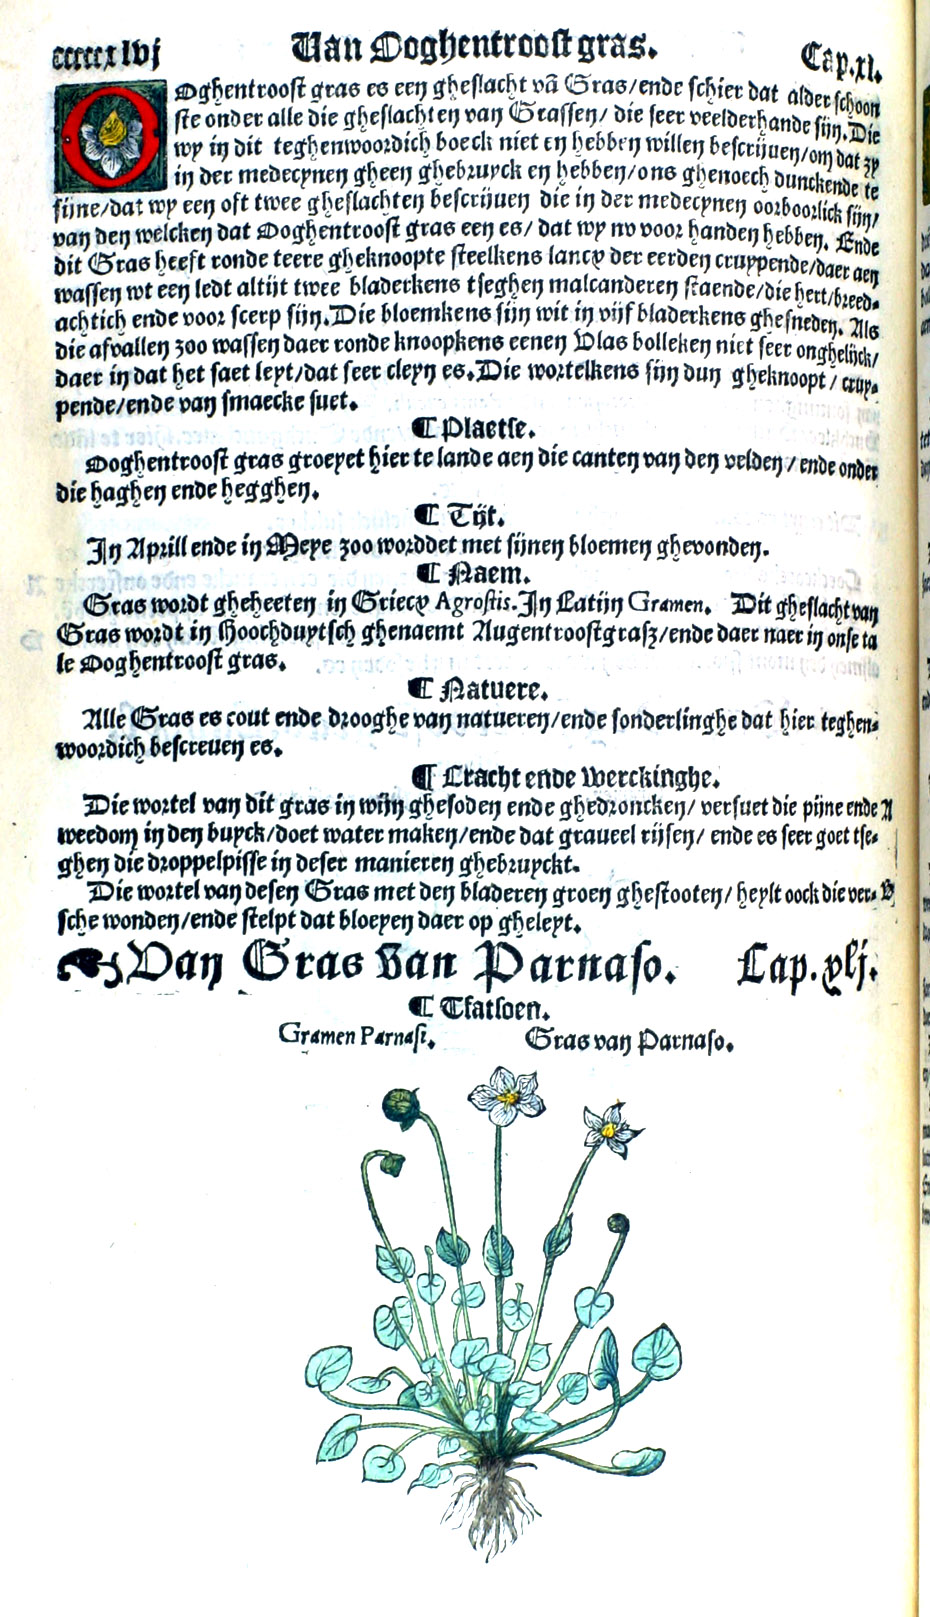 cccccxlvj Van Ooghentroost gras. Cap.xl.
OOghentroost gras es een gheslacht vā Gras/ende schier dat alder schoon
ste onder alle die gheslachten van Grassen/ die seer veelderhande sijn. Die
wy in dit teghenwoordich boeck niet en hebben willen bescrijuen/om dat zy
in der medecynen gheen ghebruyck en hebben/ons ghenoech dunckende te
sijne/dat wy een oft twee gheslachten bescrijuen die in der medecynen oorboorlick sijn/
van den welcken dat Ooghentroost gras een es/ dat wy nv voor handen hebben. Ende
dit Gras heeft ronde teere gheknoopte steelkens lancx der eerden cruypende/daer aen
wassen wt een ledt altijt twee bladerkens tseghen malcanderen staende/die hert/breed-
achtich ende voor scerp sijn. Die bloemkens sijn wit in vijf bladerkens ghesneden. Als
die afvallen zoo wassen daer ronde knoopkens eenen Vlas bolleken niet seer onghelijck/
daer in dat het saet leyt/dat seer cleyn es. Die wortelkens sijn dun gheknoopt/ cruy-
pende/ende van smaecke suet.
¶ Plaetse.
Ooghentroost gras groeyet hier te lande aen die canten van den velden/ ende onder
die haghen ende hegghen.
¶ Tijt.
In Aprill ende in Meye zoo worddet met sijnen bloemen ghevonden.
¶ Naem.
Gras wordt gheheeten in Griecx Agrostis. In Latijn Gramen. Dit gheslacht van
Gras wordt in Hoochduytsch ghenaemt Augentroostgrasz/ende daer naer in onse ta
le Ooghentroost gras.
¶ Natuere.
Alle Gras es cout ende drooghe van natueren/ende sonderlinghe dat hier teghen-
woordich bescreuen es.
¶ Cracht ende Werckinghe.
Die wortel van dit gras in wijn ghesoden ende ghedroncken/ versuet die pijne ende A
weedom in den buyck/doet water maken/ende dat graueel rijsen/ ende es seer goet tse-
ghen die droppelpisse in deser manieren ghebruyckt.
Die wortel van desen Gras met den bladeren groen ghestooten/ heylt oock die ver- B
sche wonden/ende stelpt dat bloeyen daer op gheleyt.
☙ Van Gras van Parnaso. Cap.xlj.
¶ Tfatsoen.
Gramen Parnasi. Gras van Parnaso.